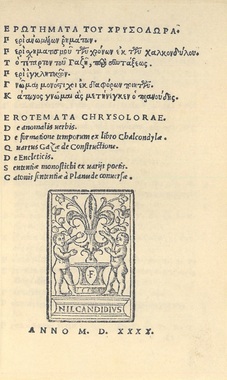 ΕΡΩΤΗΜΑΤΑ ΤΟΥ ΧΡΥΣΟΛΩΡΑ
Περὶ ἀνωμάλων ῥημάτων.
Περὶ σχηματισμοῦ τῶν χρόνων ἐκ τῶν Χαλκονδύλου.
Τὸ τέταρτον τοῦ Γαζῆ, περὶ συντάξεως.
Περὶ ἐγκλιτικῶν.
Γνῶμαι μονόστιχοι ἐκ διαφόρων ποιητῶν.
Κάτωνος γνῶμαι ἃς μετένεγκεν ὁ πλανούδης.
EROTEMATA CHRYSOLORAE.
De anomalis verbis.
De formatione temporum ex libro Chalcondylæ
Quartus Gazæ de Constructione.
De Encleticis.
Sententiæ monostichi ex varijs poetis.
Catonis sententiæ à Planude conuersæ.
F
NIL CANDIDIVS
ANNO M. D. XXXX.